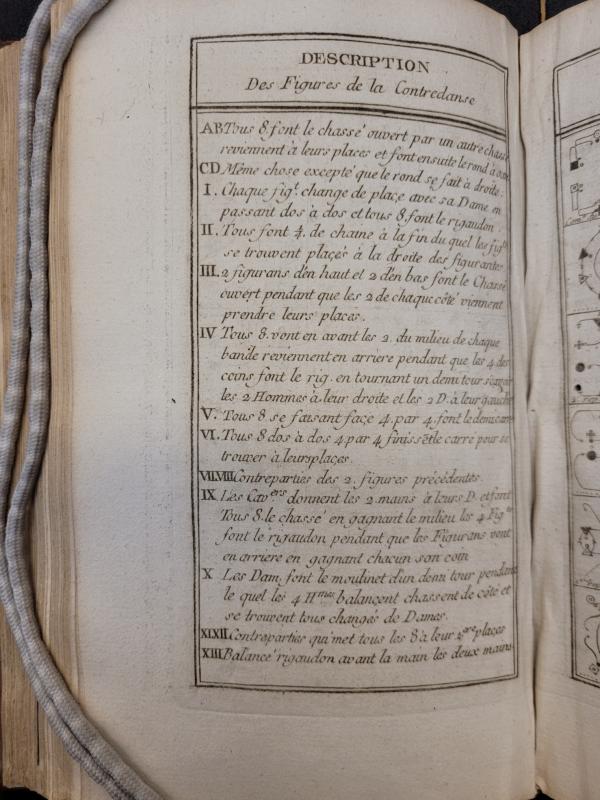 DESCRIPTION
Des Figures de la Contredanse
AB Tous 8. font le chassé ouvert par un autre chassé
reviennent à leurs places et font ensuite le rond à
CD Même chose excepté que le rond se fait à droite.
I. Chaque figt. change de place avec sa Dame en
passant dos à dos et tous 8. font le rigaudon
II. Tous font 4. de chaine à la fin du quel les figts
se trouvent placés à la droite des figurantes
III. 2 figurans d'en haut et 2 d'en bas font le Chassé
ouvert pendant que les 2 de chaque côté viennent
prendre leurs places.
IV Tous 8. vont en avant les 2. du milieu de chaque
bande reviennent en arriere pendant que les 4 des
coins font le rig. en tournant un demi tour sçavoir
les 2 Hommes à leur droite et les 2 D. à leur gauche
V. Tous 8 se faisant face 4. par 4. font le demi carré
VI. Tous 8 dos à dos 4 par 4 finissẽt le carré pour se
trouver à leurs places.
VII.VIII Contreparties des 2. figures précédentes.
IX Les Cavers donnent les 2 mains à leurs D. et font
Tous 8. le chassé en gagnant le milieu les 4 Figtes
font le rigaudon pendant que les Figurans vont
en arriere en gagnant chacun son coin
X Les Dam. font le moulinet d'un demi tour pendant
le quel les 4 Hmes balançent chassent de côté et
se trouvent tous changés de Dames.
XI.XII Contreparties qui met tous les 8 à leur 1eres places
XIII Balancé rigaudon avant la main les deux mains